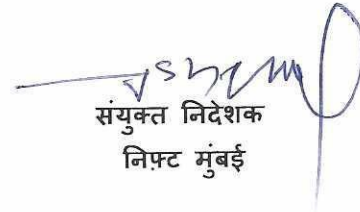 संयुक्त निदेशक
निफ़्ट मुंबई